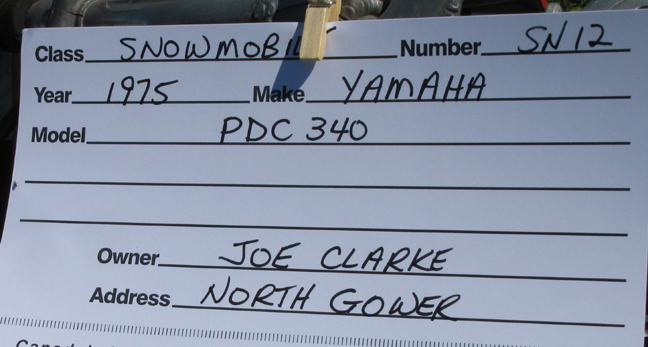 Class SNOWMOBILE Number SN12
Year 1975 Make YAMAHA
Model PDC 340
Owner JOE CLARKE
Address NORTH GOWER